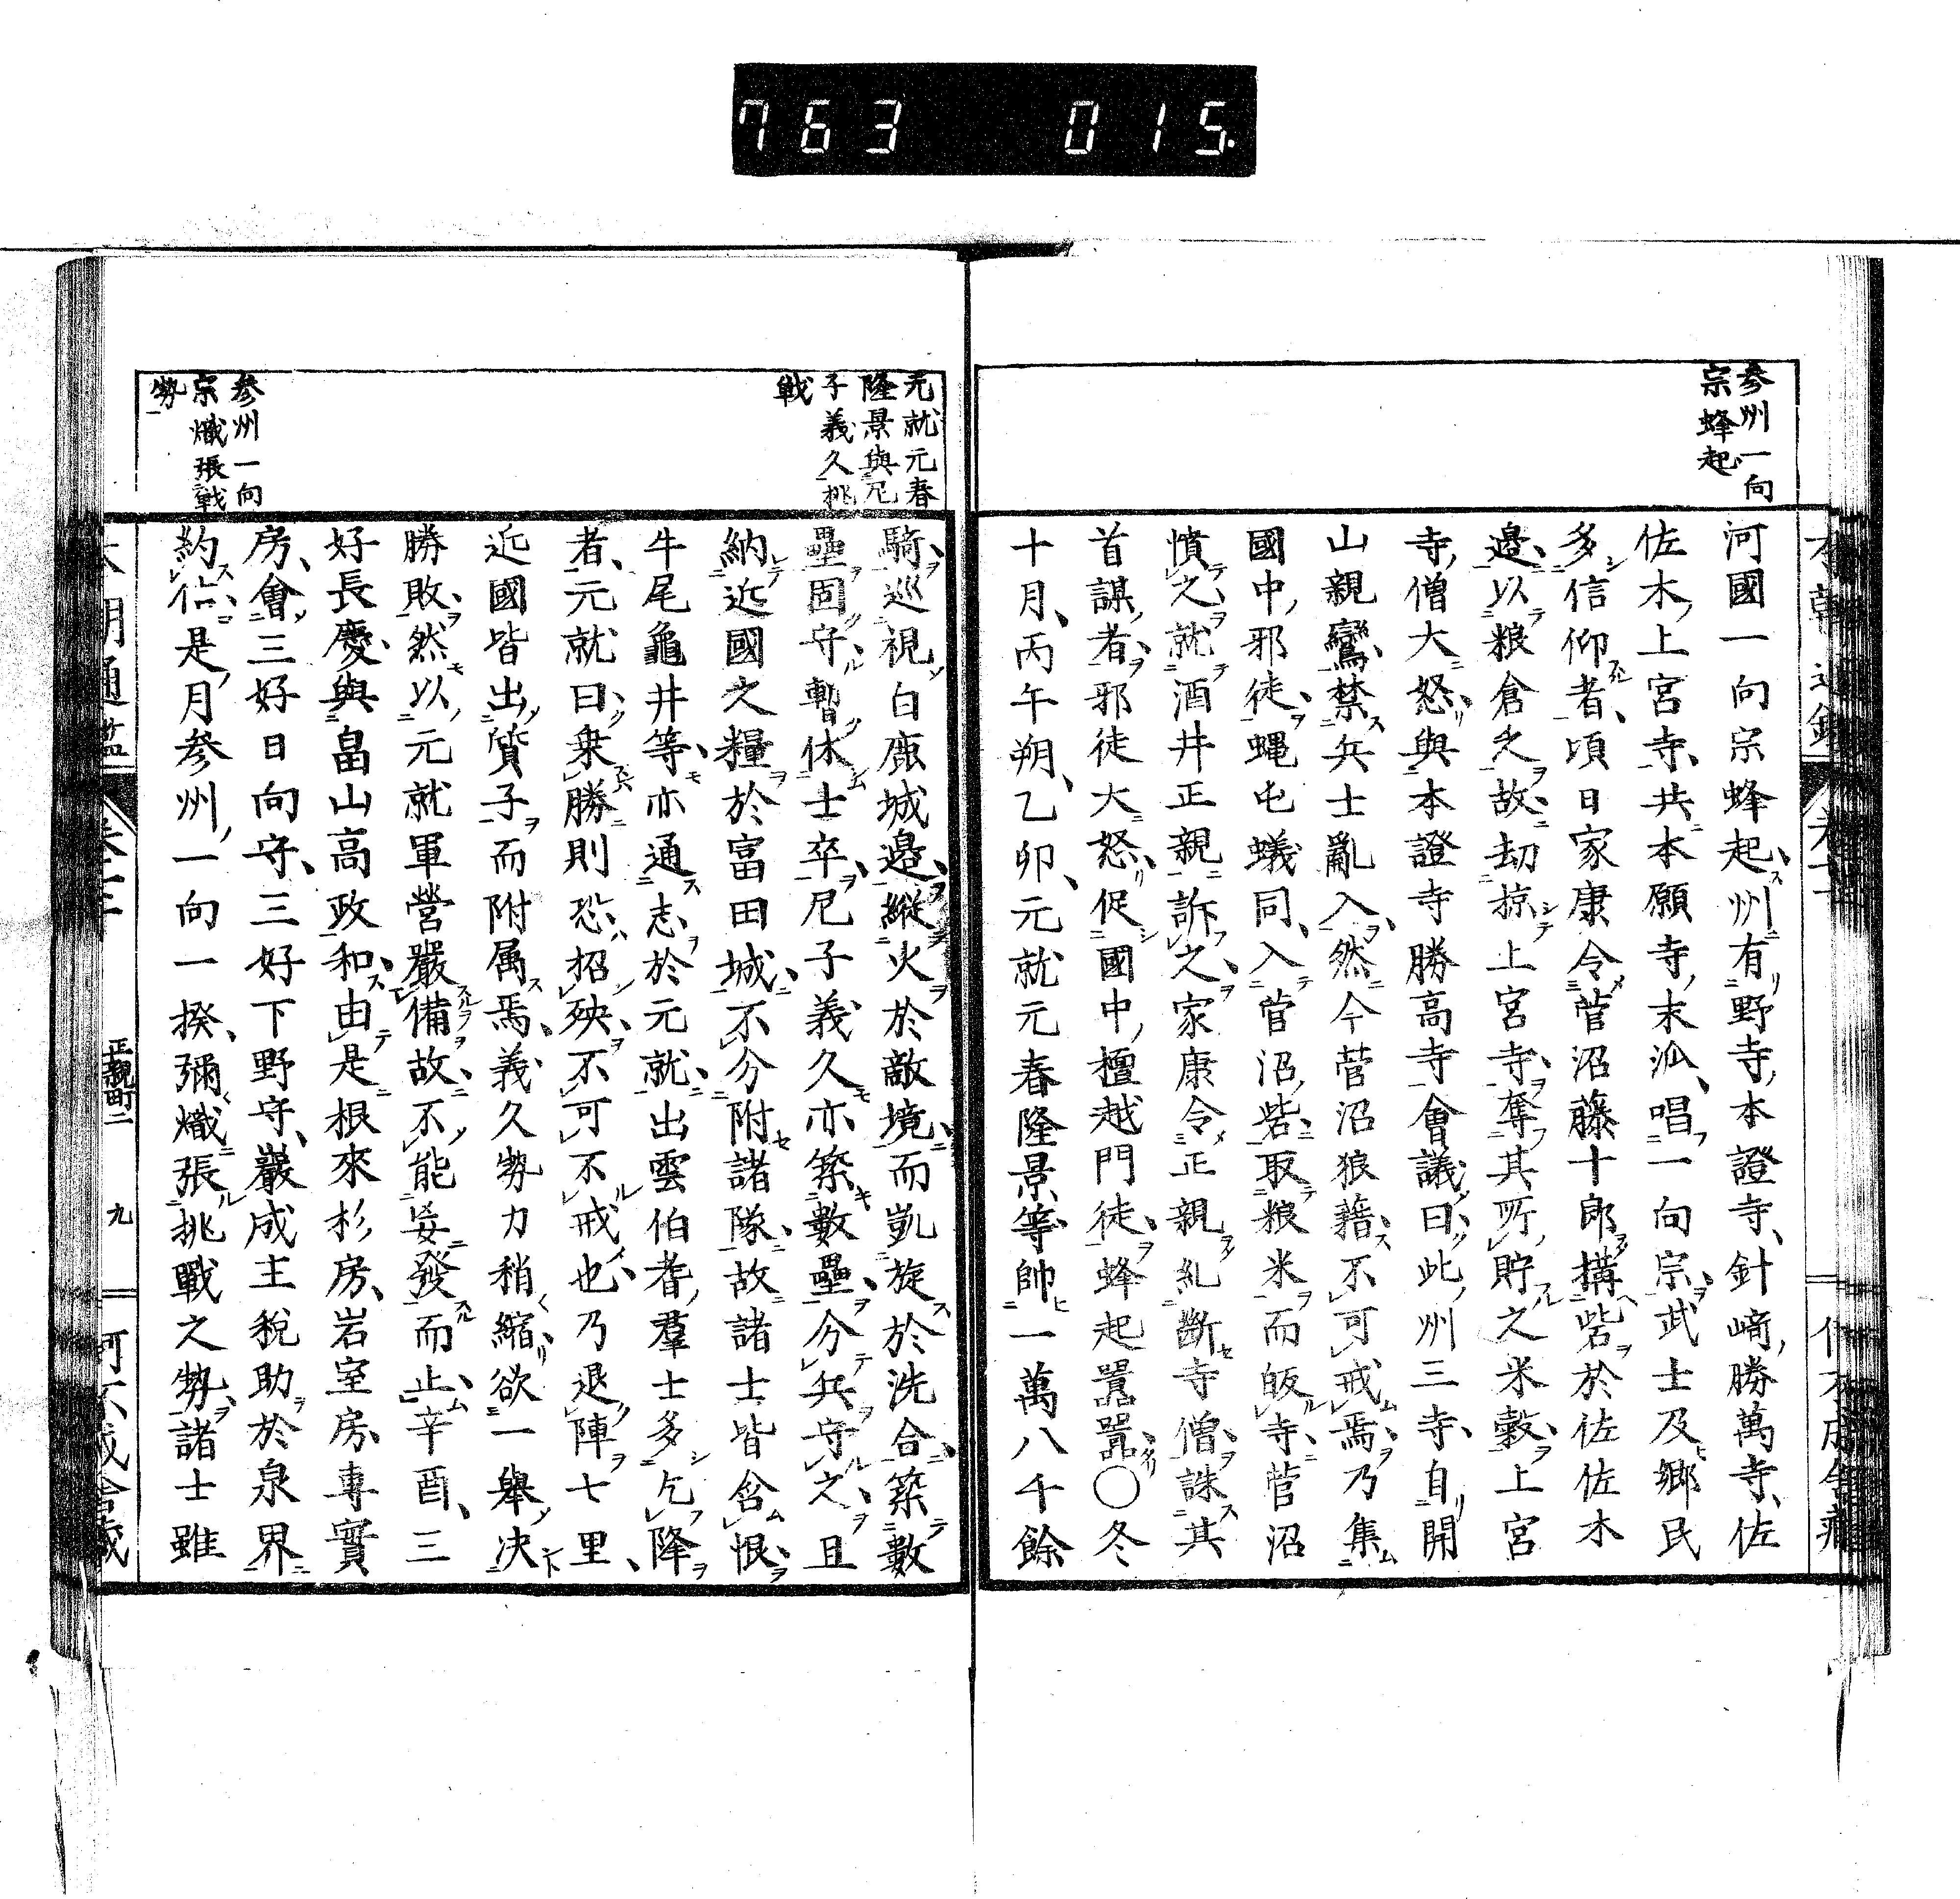 763 015
参州一向
宗蜂起
河國一向宗蜂起州有野寺本證寺針﨑勝萬寺佐
佐木上宮寺共本願寺末派唱一向宗武士及郷民
多信仰者頃日家康令菅沼藤十郎搆砦於佐佐木
邉以粮倉乏故刧掠上宮寺奪其所貯之米穀上宮
寺僧大怒與本證寺勝高寺會議曰此州三寺自開
山親鸞禁兵士亂入然今菅沼狼藉不可戒焉乃集
國中邪徒蝿屯蟻同入菅沼砦取粮米而皈寺菅沼
憤之就酒井正親訴之家康令正親糺斷寺僧誅其
首謀者邪徒大怒促國中檀越門徒蜂起囂囂○冬
十月丙午朔乙卯元就元春隆景等帥一萬八千餘
元就元春
隆景與尼
子義久挑
戦
騎巡視白鹿城邉縱火於敵境而凱旋於洗合築數
壘固守暫休士卒尼子義久亦築數壘分兵守之且
納近國之糧於富田城不分附諸隊故諸士皆含恨
牛尾龜井等亦通志於元就出雲伯耆羣士多乞降
者元就曰衆勝則恐招殃不可不戒也乃退陣七里
近國皆出質子而附属焉義久勢力稍縮欲一舉决
勝敗然以元就軍營嚴備故不能妄發而止辛酉三
好長慶與畠山高政和由是根來杉房岩室房專實
房會三好日向守三好下野守巖成主税助於泉界
約和是月参州一向一揆彌熾張挑戰之勢諸士雖
参州一向
宗熾張戦
勢
正親町二
九